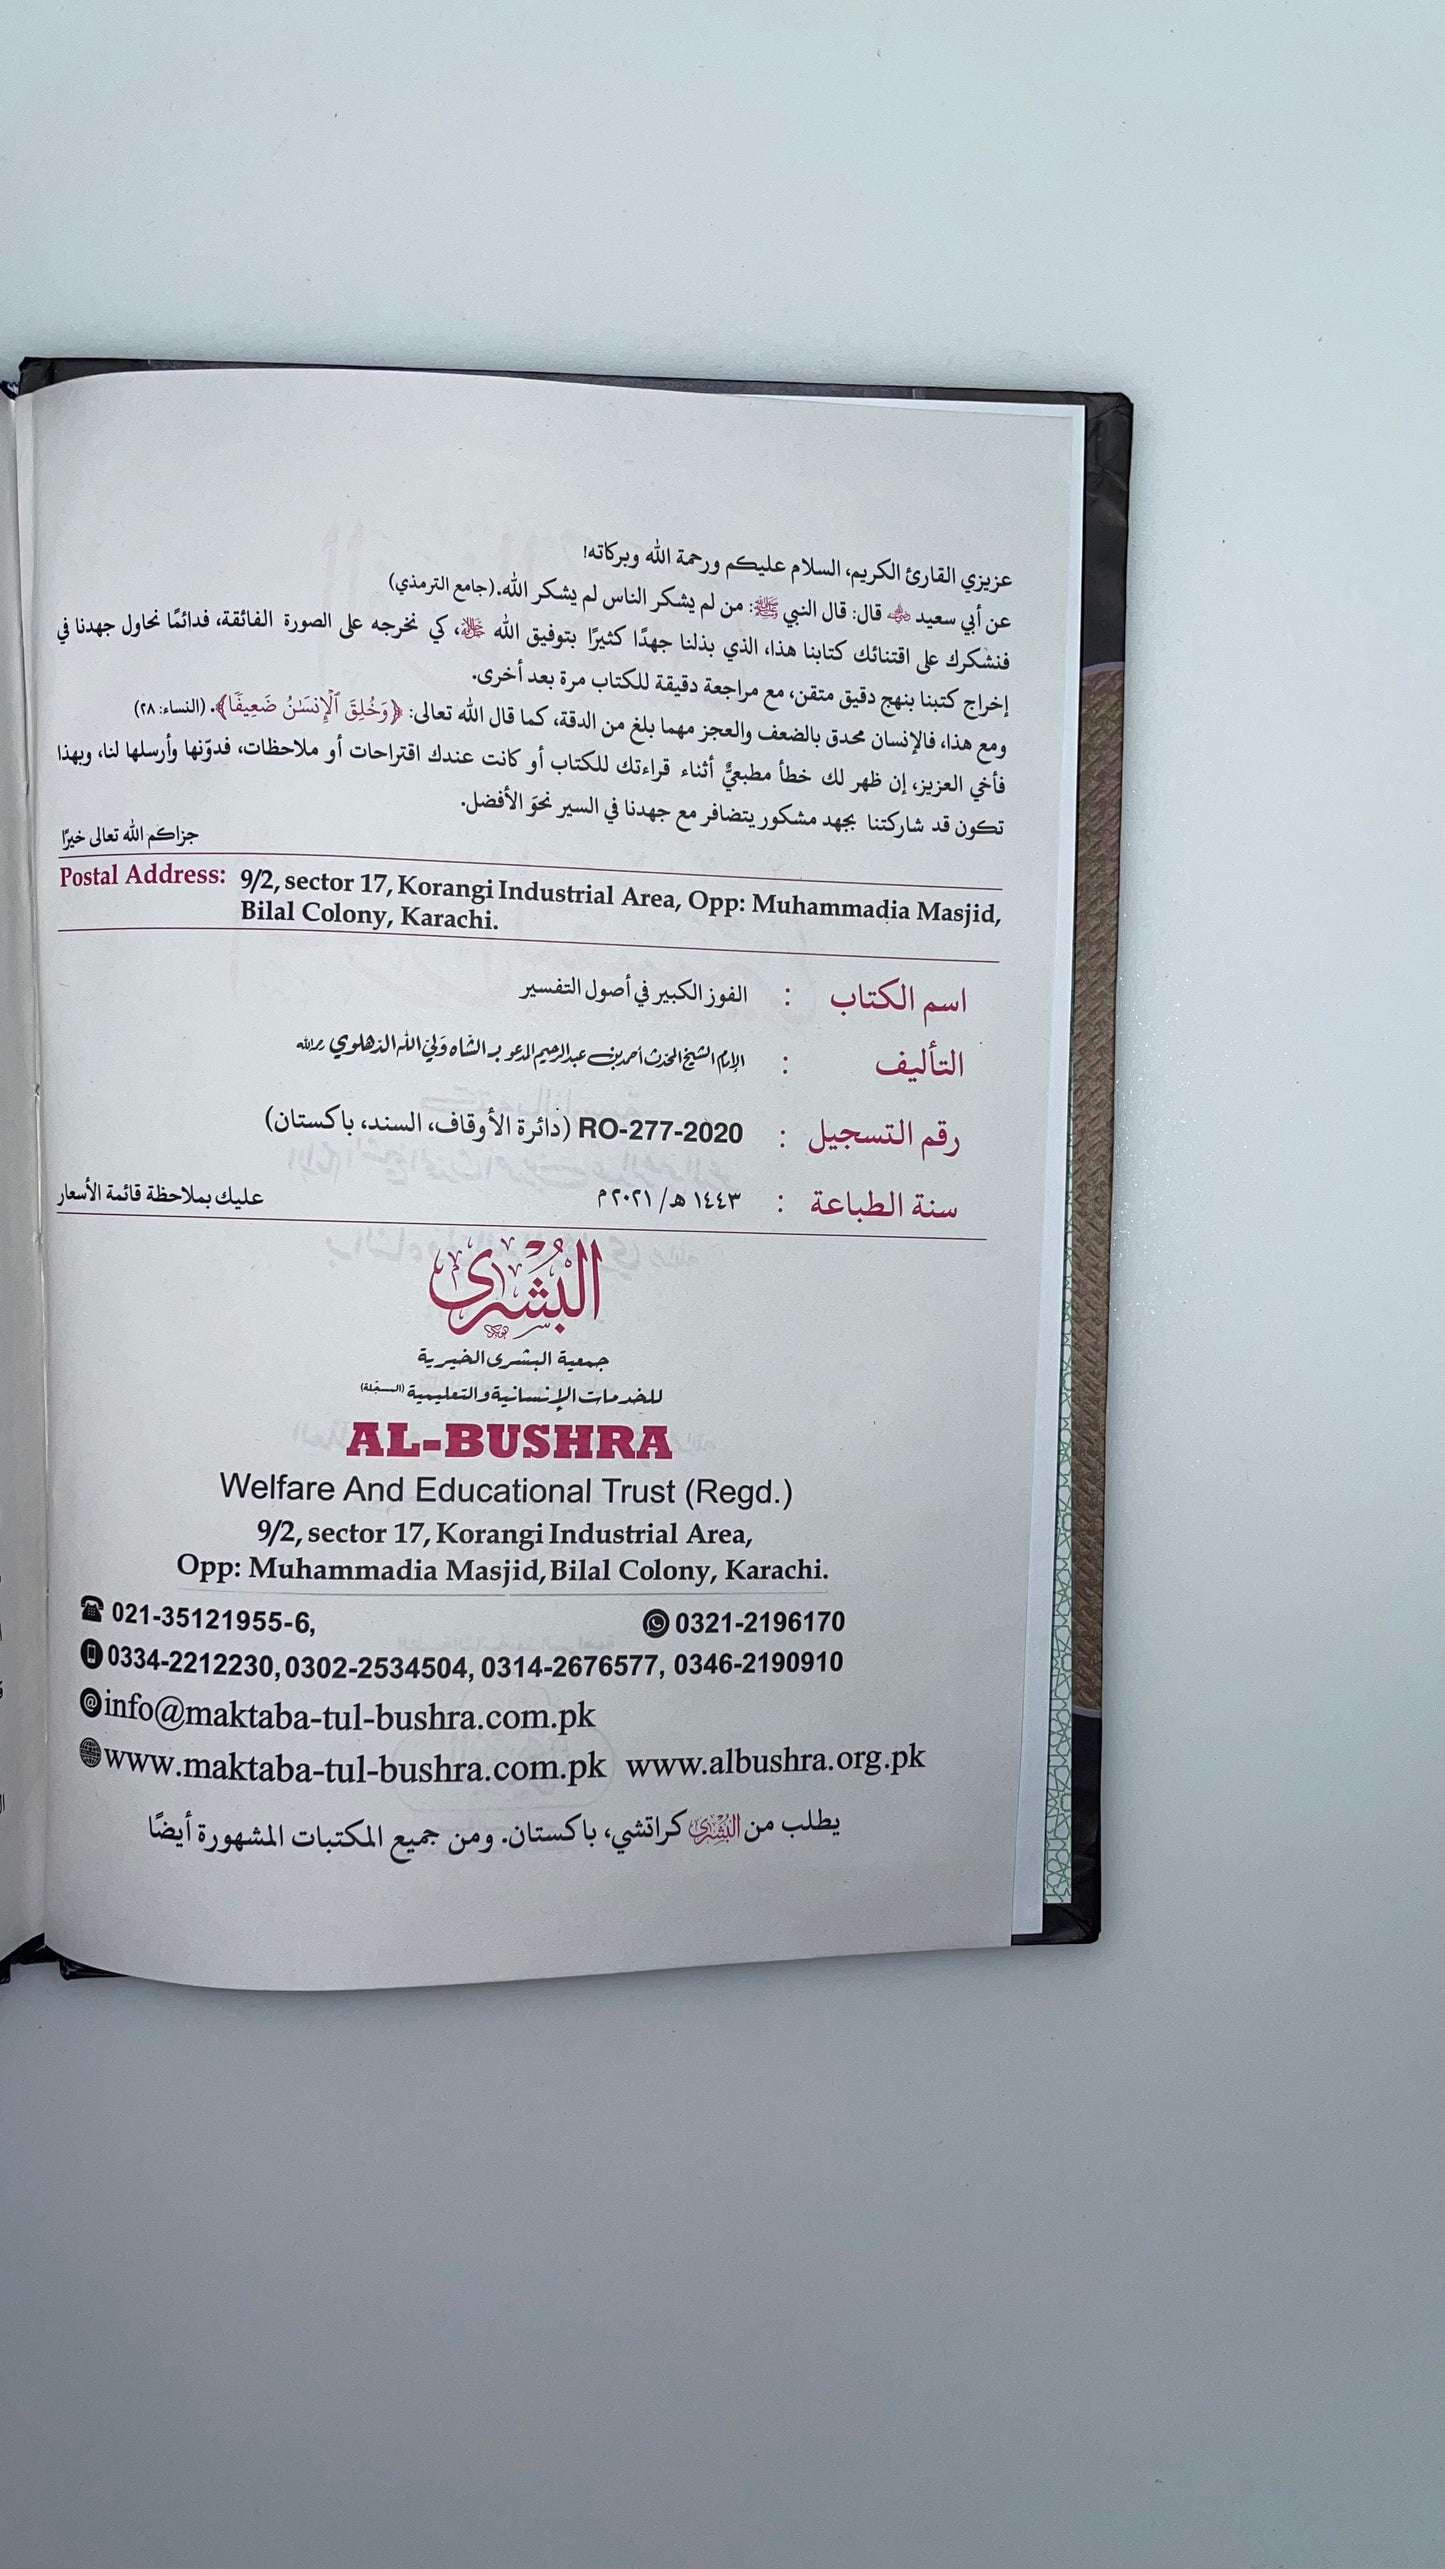 عزيزي القارئ الكريم، السلام عليكم ورحمة الله وبركاته!
عن أبي سعيد ﷺ قال: قال النبي ﷺ: من لم يشكر الناس لم يشكر الله. (جامع الترمذي)
فنشكرك على اقتنائك كتابنا هذا، الذي بذلنا جهدًا كثيرًا بتوفيق الله ﷻ، كي نخرجه على الصورة الفائقة، فدائمًا نحاول جهدنا في
إخراج كتبنا بنهج دقيق متقن، مع مراجعة دقيقة للكتاب مرة بعد أخرى.
ومع هذا، فالإنسان محدق بالضعف والعجز مهما بلغ من الدقة، كما قال الله تعالى: ﴿وَخُلِقَ ٱلْإِنسَـٰنُ ضَعِيفًا﴾. (النساء: ٢٨)
فأخي العزيز، إن ظهر لك خطأ مطبعيٌّ أثناء قراءتك للكتاب أو كانت عندك اقتراحات أو ملاحظات، فدوّنها وأرسلها لنا، وبهذا
تكون قد شاركتنا بجهد مشكور يتضافر مع جهدنا في السير نحوَ الأفضل.
جزاكم الله تعالى خيرًا
Postal Address: 9/2, sector 17, Korangi Industrial Area, Opp: Muhammadia Masjid,
Bilal Colony, Karachi.
اسم الكتاب : الفوز الكبير في أصول التفسير
التأليف : الإمام الشيخ المحدث أحمد بن عبد الرحيم المدعو بـ الشاه وَليّ الله الدهلوي رحمه الله
رقم التسجيل : RO-277-2020 (دائرة الأوقاف، السند، باكستان)
سنة الطباعة : ١٤٤٣ هـ/ ٢٠٢١ م عليك بملاحظة قائمة الأسعار
البُشْرى
جمعية البشرى الخيرية
للخدمات الإنسانية والتعليمية (المسجّلة)
AL-BUSHRA
Welfare And Educational Trust (Regd.)
9/2, sector 17, Korangi Industrial Area,
Opp: Muhammadia Masjid, Bilal Colony, Karachi.
021-35121955-6, 0321-2196170
0334-2212230, 0302-2534504, 0314-2676577, 0346-2190910
info@maktaba-tul-bushra.com.pk
www.maktaba-tul-bushra.com.pk www.albushra.org.pk
يطلب من البُشْرى كراتشي، باكستان. ومن جميع المكتبات المشهورة أيضًا